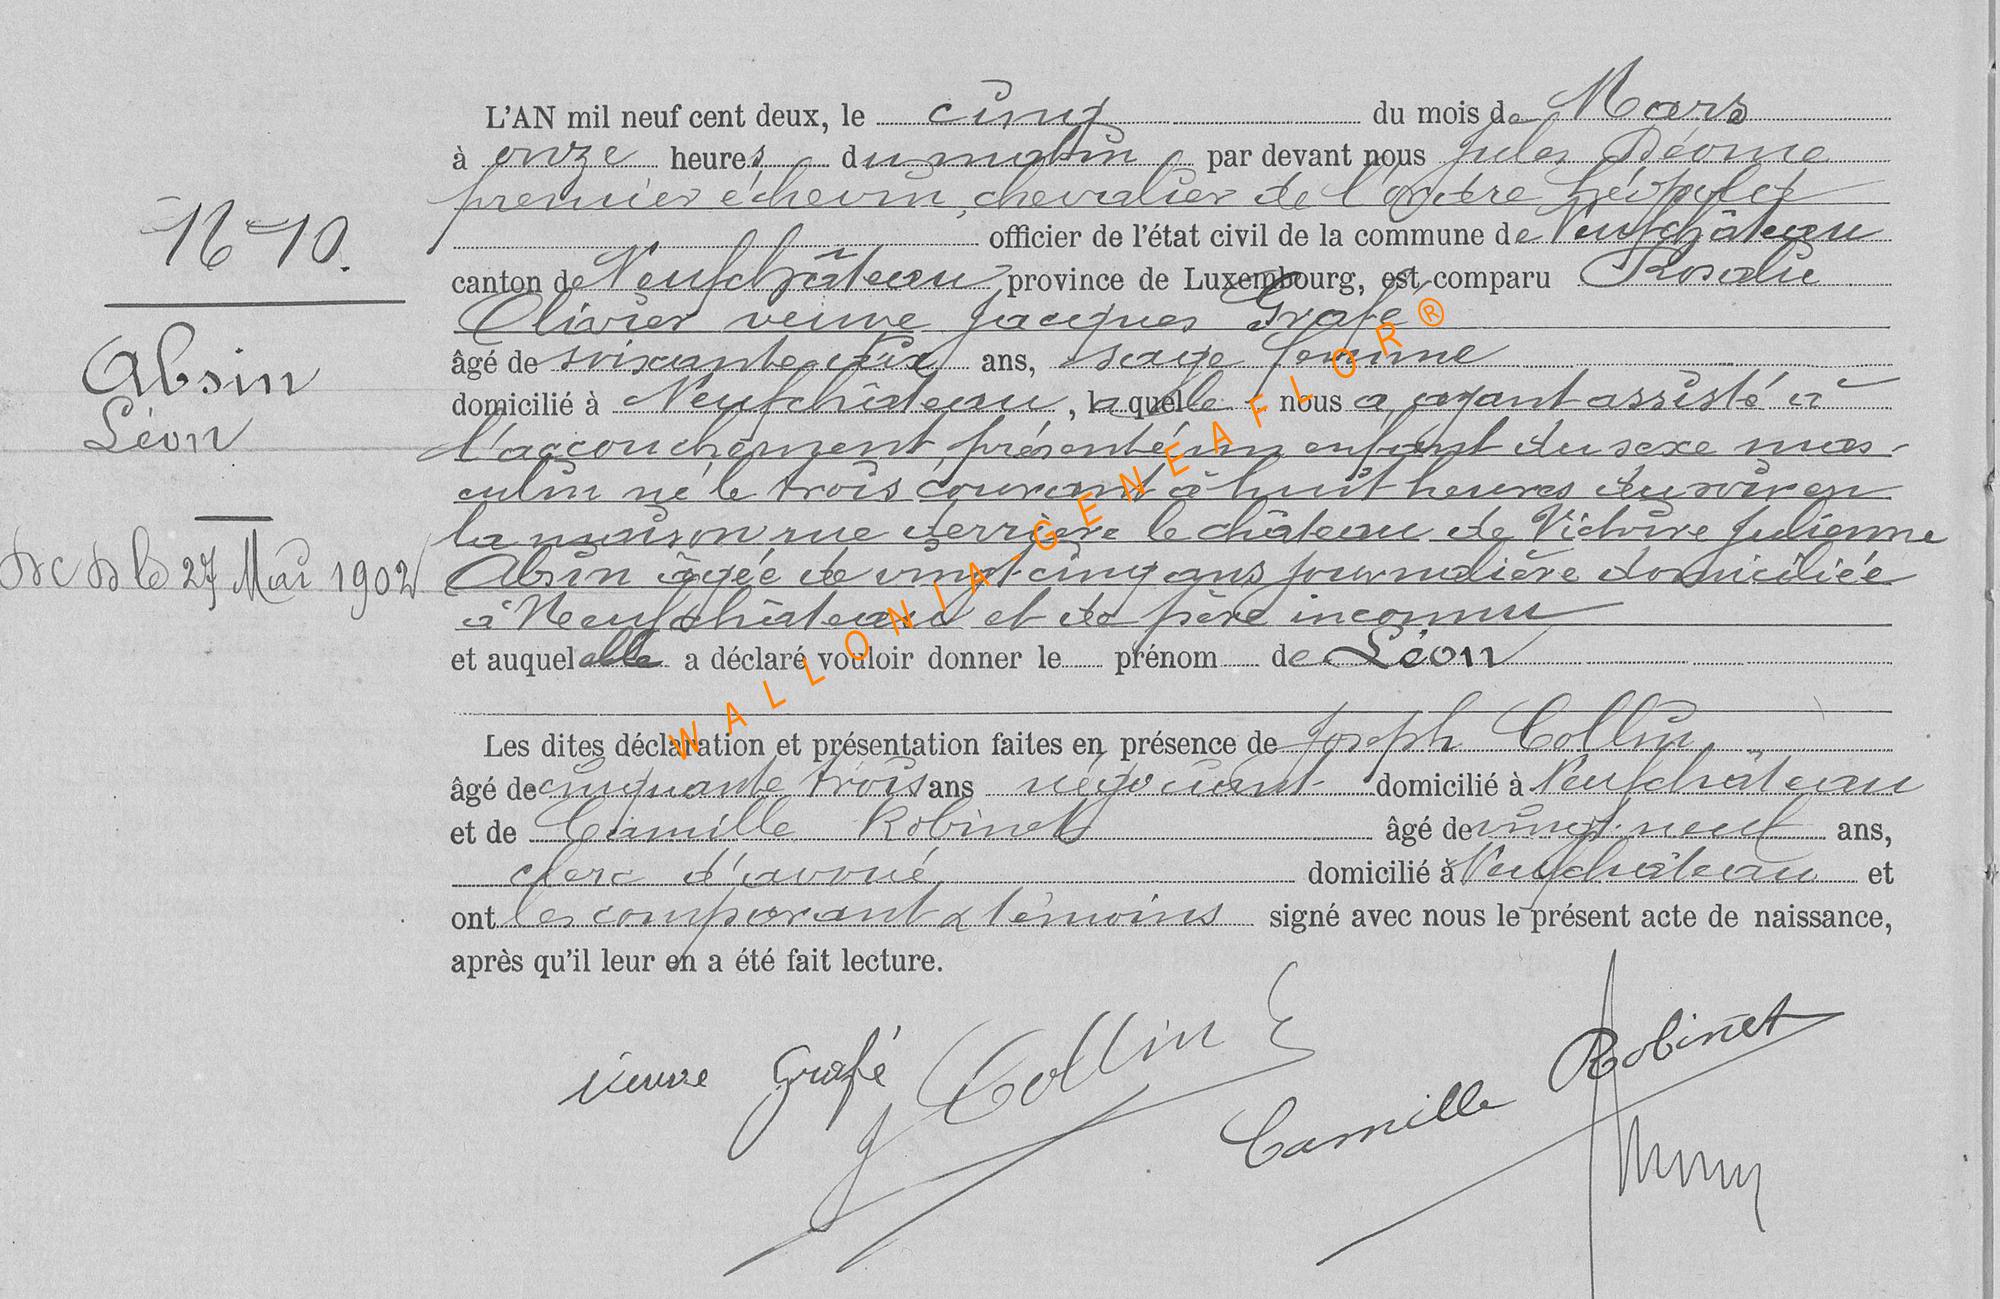 L'AN mil neuf cent deux, le cinq du mois de Mars
à onze heures du matin par devant nous Jules
premier échevin, chevalier de l'ordre Léopold
officier de l'état civil de la commune de Neufchâteau
canton de Neufchâteau province de Luxembourg, est comparu Rosalie
Olivier veuve Jacques Grafé
âgé de ans, sage femme
domicilié à Neufchâteau, laquelle nous a ayant assisté à
l'accouchement, présenté un enfant du sexe mas-
culin né le trois courant à huit heures du soir en
la maison rue derrière le château de Victoire Julienne
Absin âgée de vingt-cinq ans journalière domiciliée
à Neufchâteau et de père inconnu
et auquel elle a déclaré vouloir donner le prénom de Léon
Les dites déclaration et présentation faites en présence de Joseph Collin
âgé de cinquante trois ans négociant domicilié à Neufchâteau
et de Camille Robinet âgé de vingt-neuf ans,
clerc d'avoué domicilié à Neufchâteau et
ont les comparant & témoins signé avec nous le présent acte de naissance,
après qu'il leur en a été fait lecture.
N° 10.
Absin
Léon
le 27 Mai 1902
veuve Grafé
J Collin
Camille Robinet
WALLONIA-GENEAFLOR®